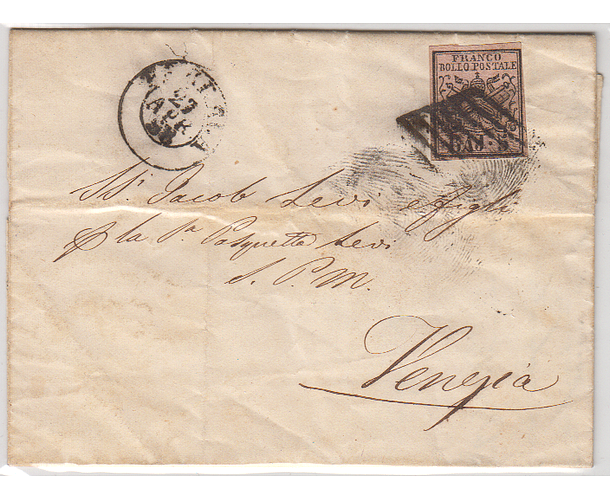 FRANCO
BOLLO POSTALE
BAJ. 5
27
APR
SS.i Jacob Levi e figli
p la Sa Pasquetta Levi
S. P. M.
Venezia